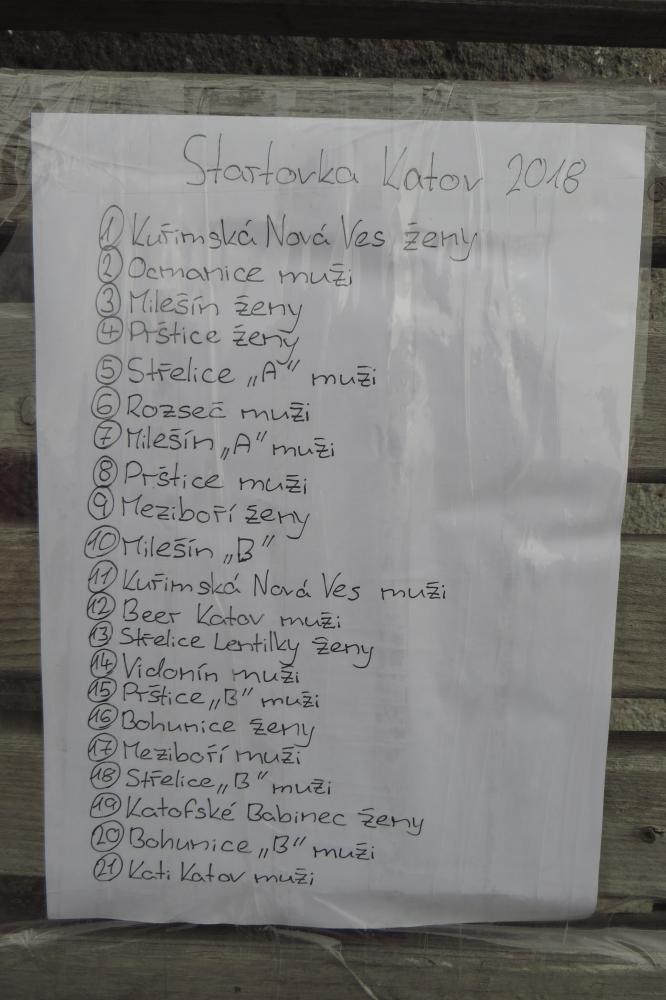 Startovka Katov 2018
1 Kuřimská Nová Ves ženy
2 Ocmanice muži
3 Milešín ženy
4 Prštice ženy
5 Střelice „A" muži
6 Rozseč muži
7 Milešín „A" muži
8 Prštice muži
9 Meziboří ženy
10 Milešín „B"
11 Kuřimská Nová Ves muži
12 Beer Katov muži
13 Střelice Lentilky ženy
14 Vidonín muži
15 Prštice „B" muži
16 Bohunice ženy
17 Meziboří muži
18 Střelice „B" muži
19 Katofské Babinec ženy
20 Bohunice „B" muži
21 Kati Katov muži